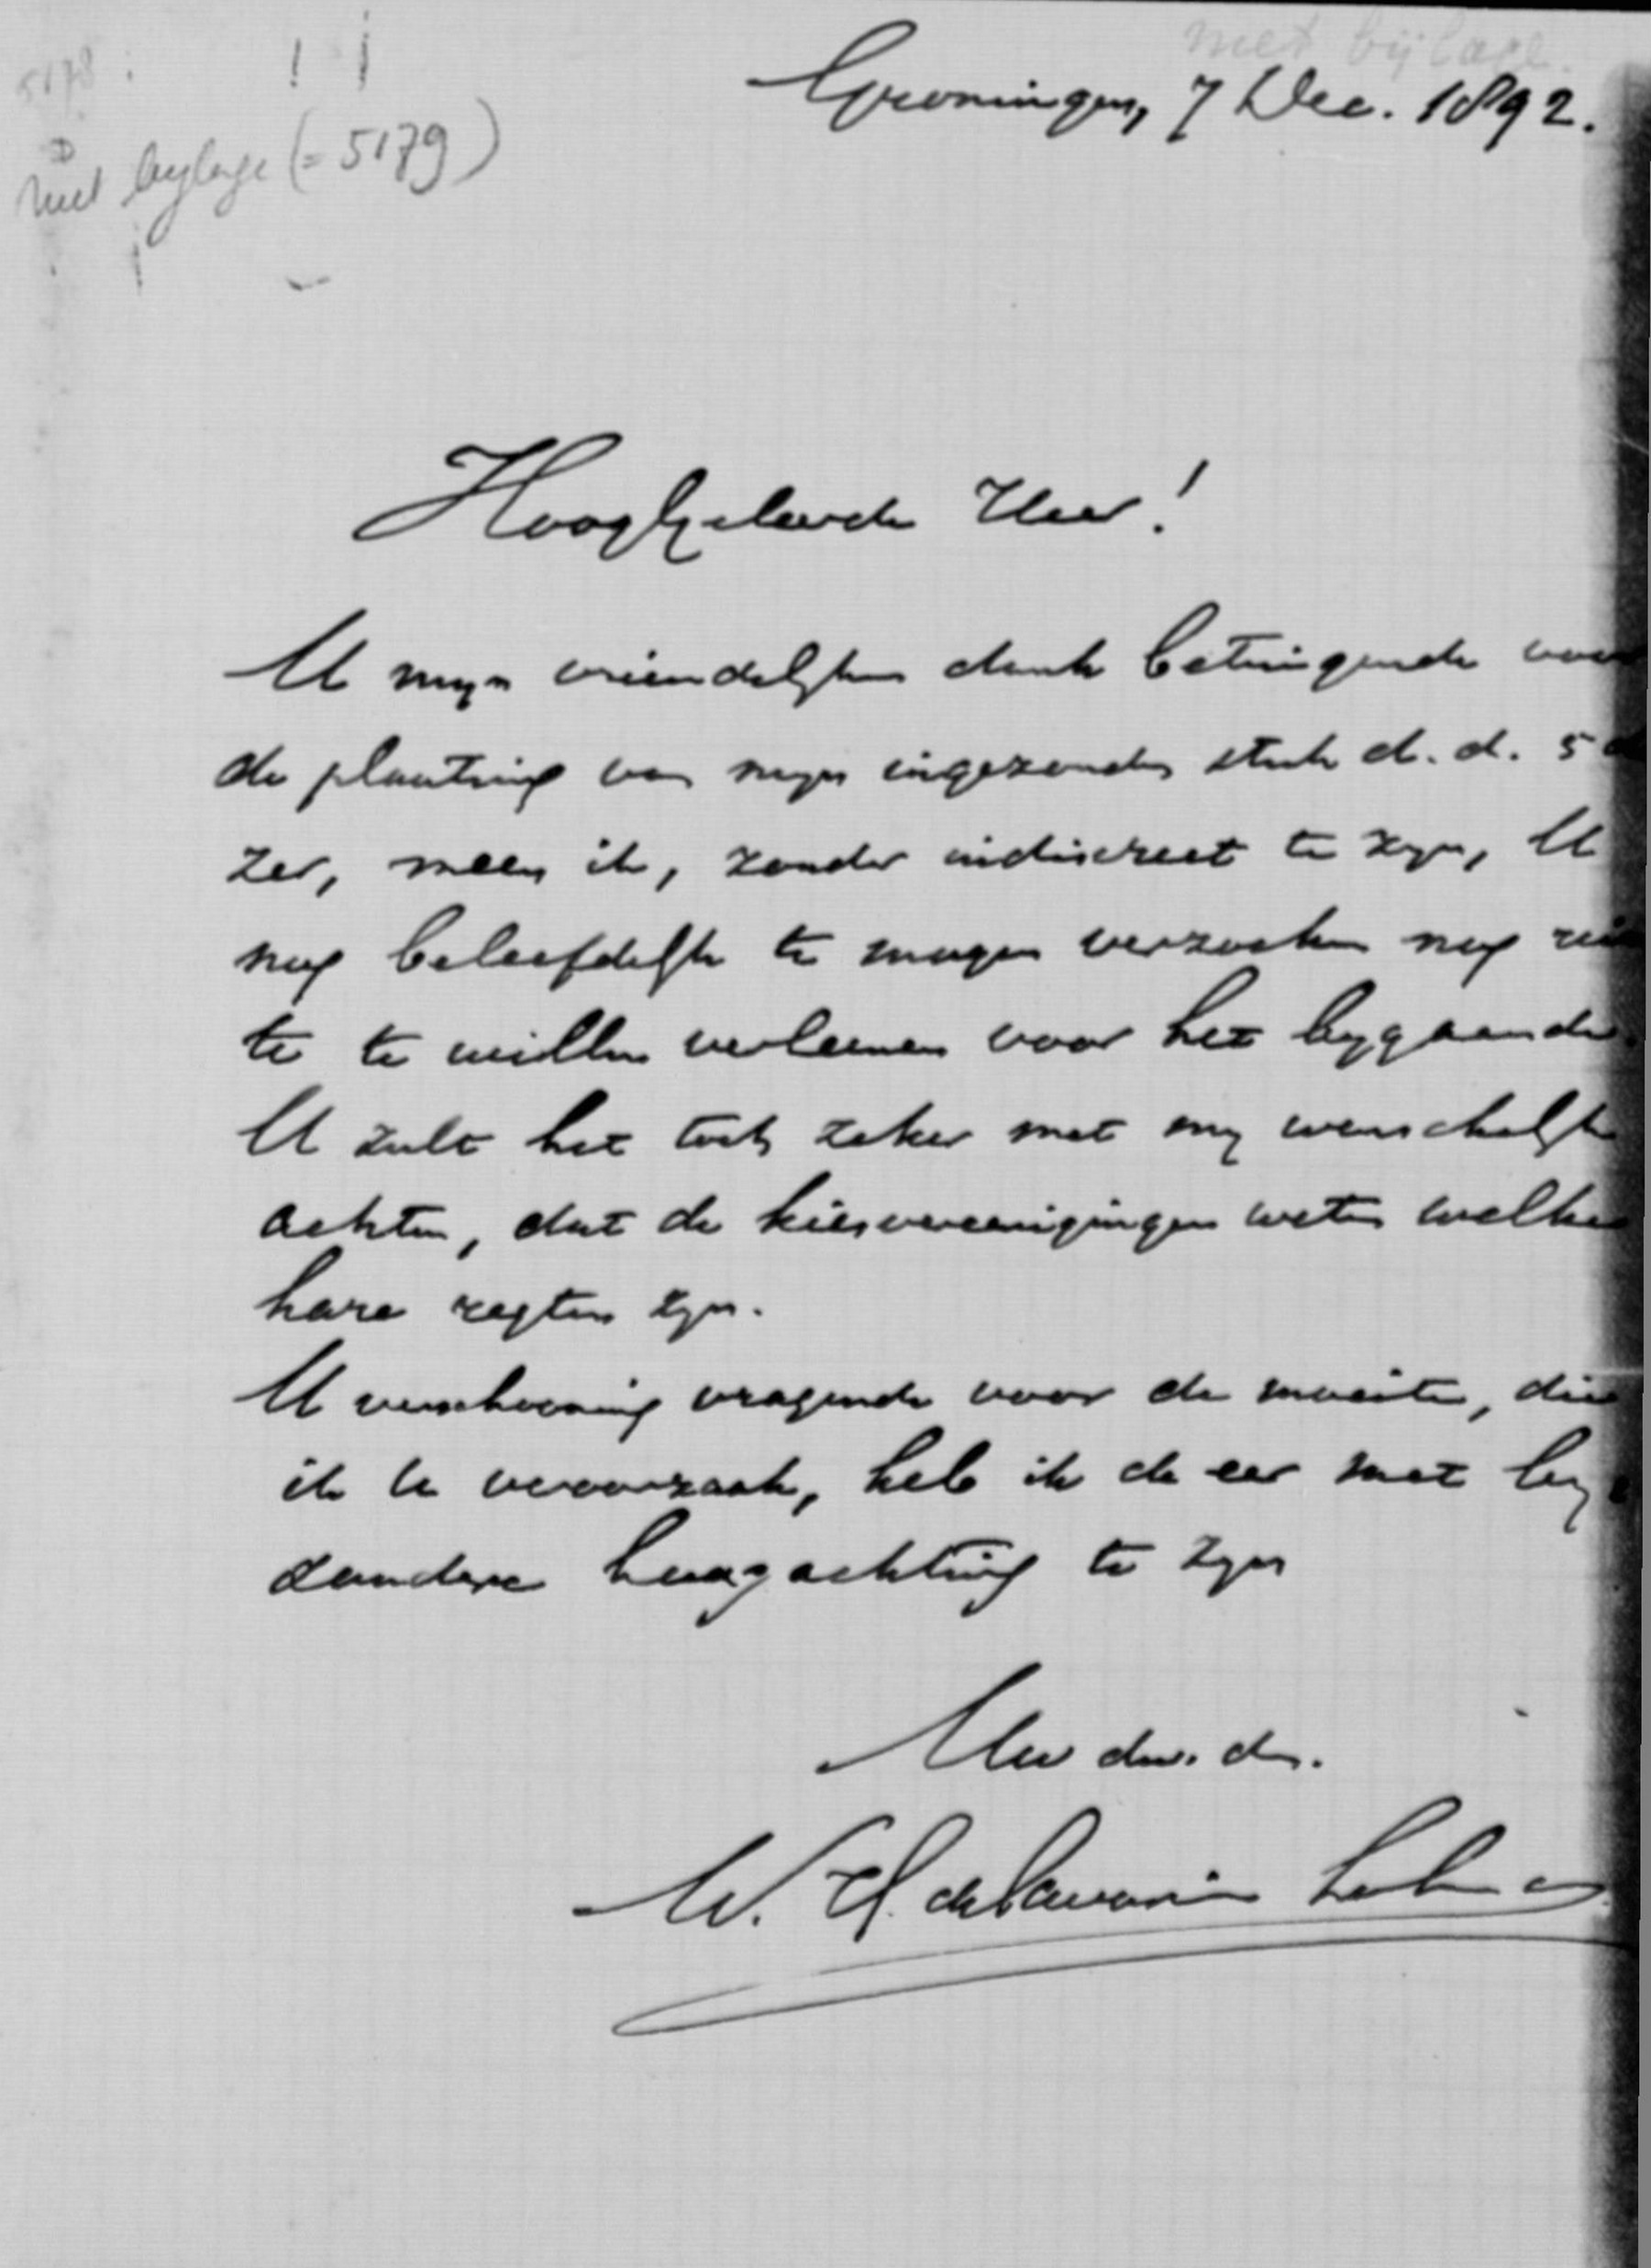 met bijlage.
5178
met bylage (= 5179)
Groningen, 7 Dec. 1892.
Hooggeleerde Heer!
U myn vriendelyken dank betuigende voor
de plaatsing van myn ingezonden stuk d.d. 5 de
zer, meen ik, zonder indiscreet te zyn, U
nog beleefdelyk te mogen verzoeken nog ruim
te te willen verleenen voor het bygaande.
U zult het toch zeker met my wenschelyk
achten, dat de kiesvereenigingen weten welke
hare regten zyn.
U verschooning vragende voor de moeite, die
ik U veroorzaak, heb ik de eer met by
zondere hoogachting te zyn
Uw dw. dr.
W. H. de Savornin Lohman